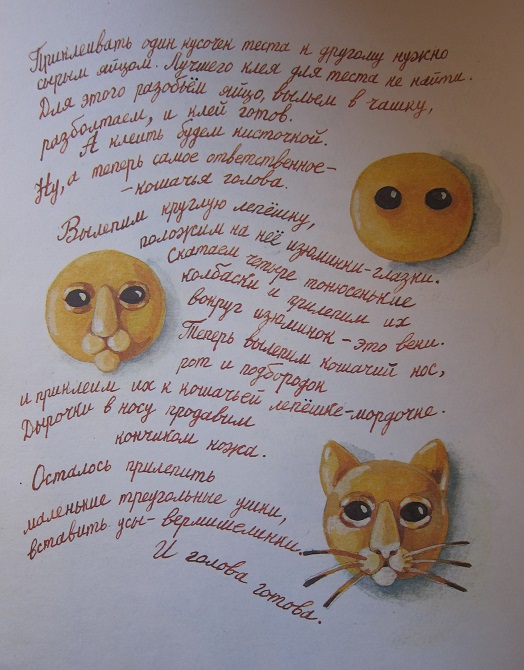 Приклеивать один кусочек теста к другому нужно
сырым яйцом. Лучшего клея для теста не найти.
Для этого разобьём яйцо, выльем в чашку,
разболтаем, и клей готов.
А клеить будем кисточкой.
Ну, а теперь самое ответственное-
-кошачья голова.
Вылепим круглую лепёшку,
положим на неё изюминки-глазки.
Скатаем четыре тонюсенькие
колбаски и прилепим их
вокруг изюминок - это веки.
Теперь вылепим кошачий нос,
рот и подбородок
и приклеим их к кошачьей лепёшке-мордочке.
Дырочки в носу продавим
кончиком ножа.
Осталось прилепить
маленькие треугольные ушки,
вставить усы-вермишелинки.
И голова готова.